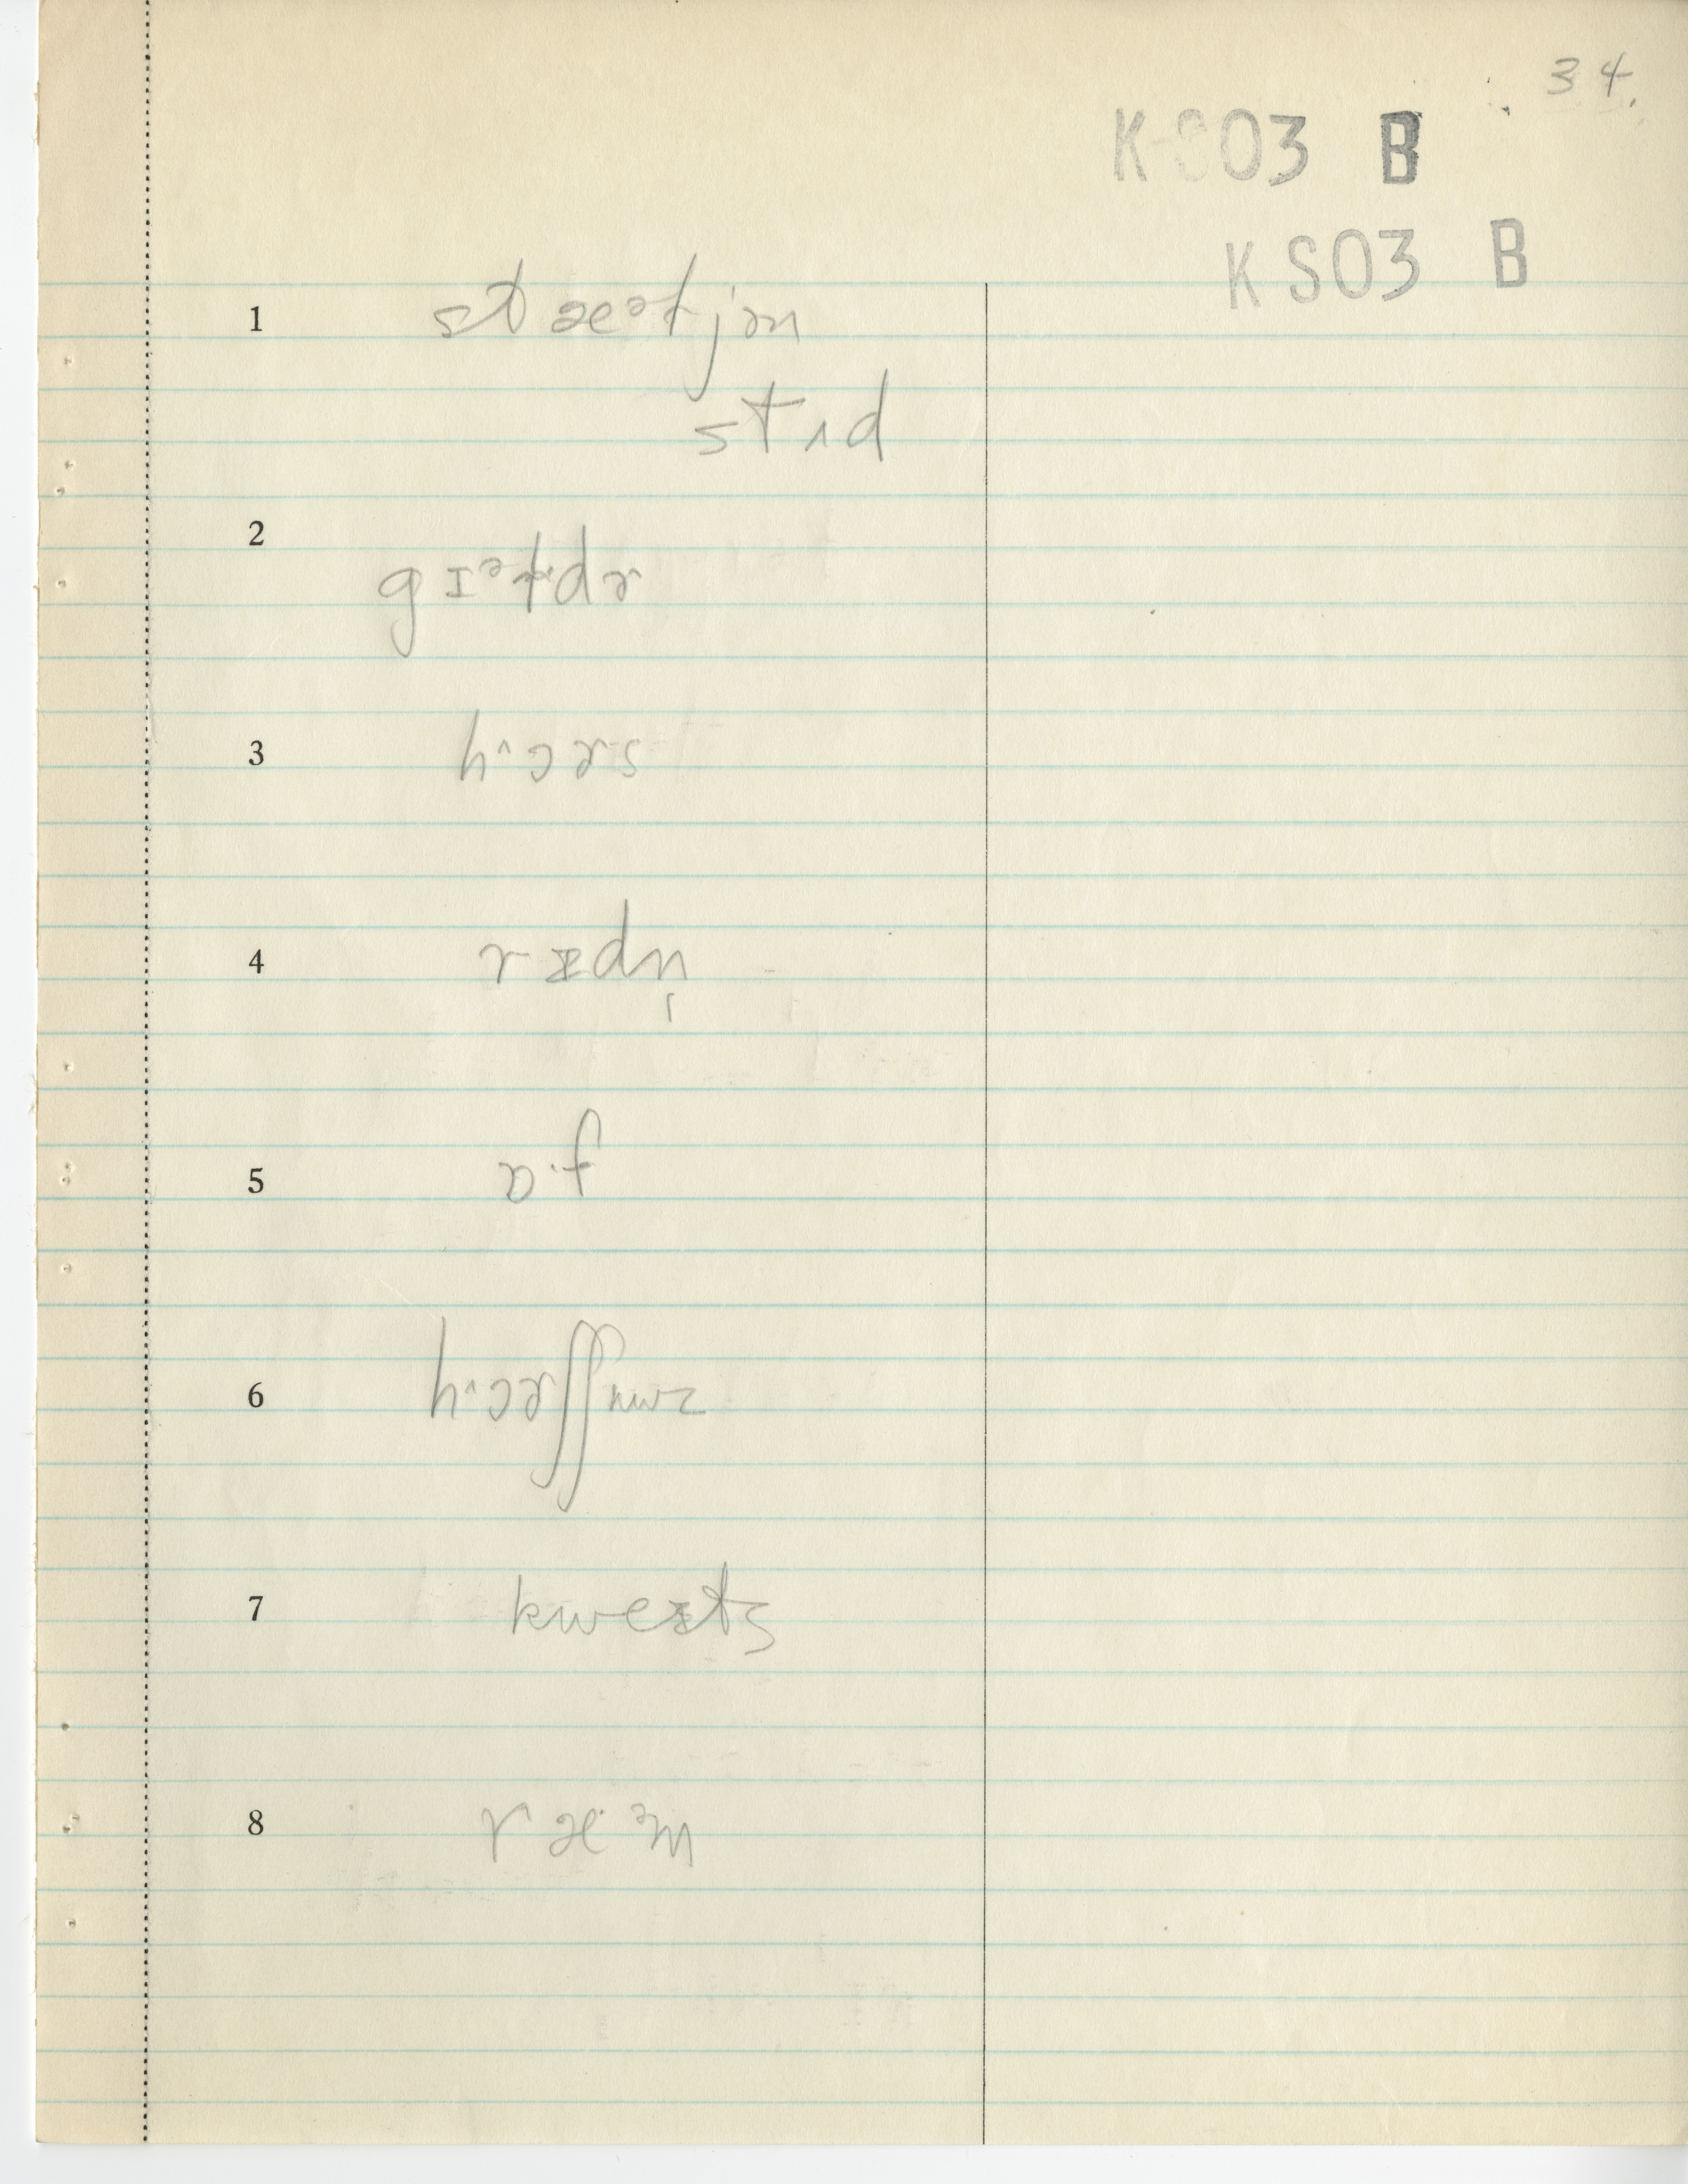 34.
K S03 B
KS03 B
1 stæəɫjən
stɪd
2 gɪəɫdɚ
3 hɔɚs
4 rɪdn̩
5 ɒf
6 hɔɚʃʃuwz
7 kwɛɪts
8 ræəm